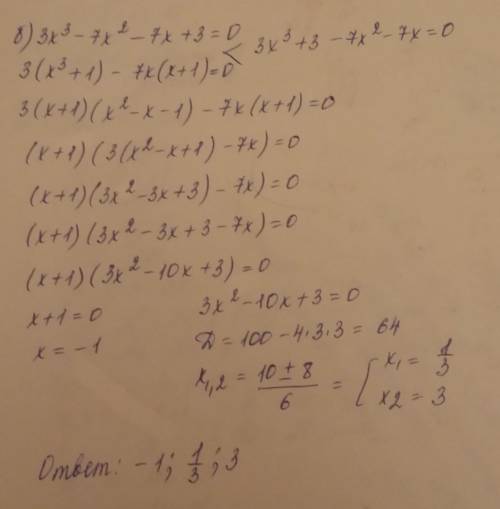 б) 3x³ - 7x² - 7x + 3 = 0 < 3x³ + 3 - 7x² - 7x = 0
3(x³ + 1) - 7x(x + 1) = 0
3(x + 1)(x² - x - 1) - 7x(x + 1) = 0
(x + 1)(3(x² - x + 1) - 7x) = 0
(x + 1)(3x² - 3x + 3) - 7x) = 0
(x + 1)(3x² - 3x + 3 - 7x) = 0
(x + 1)(3x² - 10x + 3) = 0
x + 1 = 0
x = -1
3x² - 10x + 3 = 0
D = 100 - 4·3·3 = 64
x₁,₂ = (10 ± 8)/6 = [ x₁ = 1/3
x2 = 3
Ответ: -1; 1/3; 3